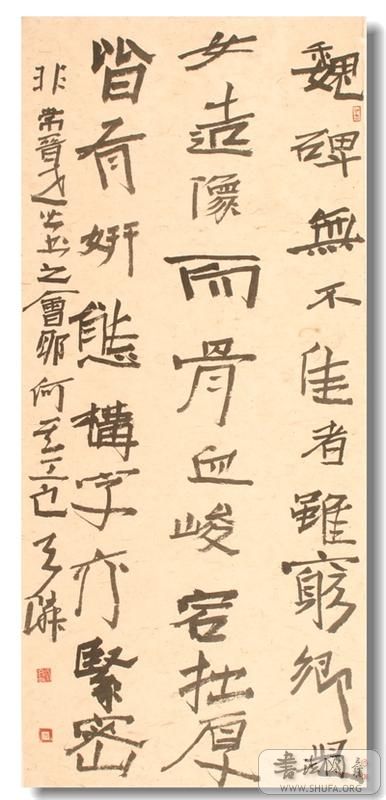 魏碑無不佳者雖窮鄉
女造像而骨血峻宕拙厚
皆有妍態構字亦緊密
非常晉書之會邪何其工也
書法網
WWW.SHUFA.ORG